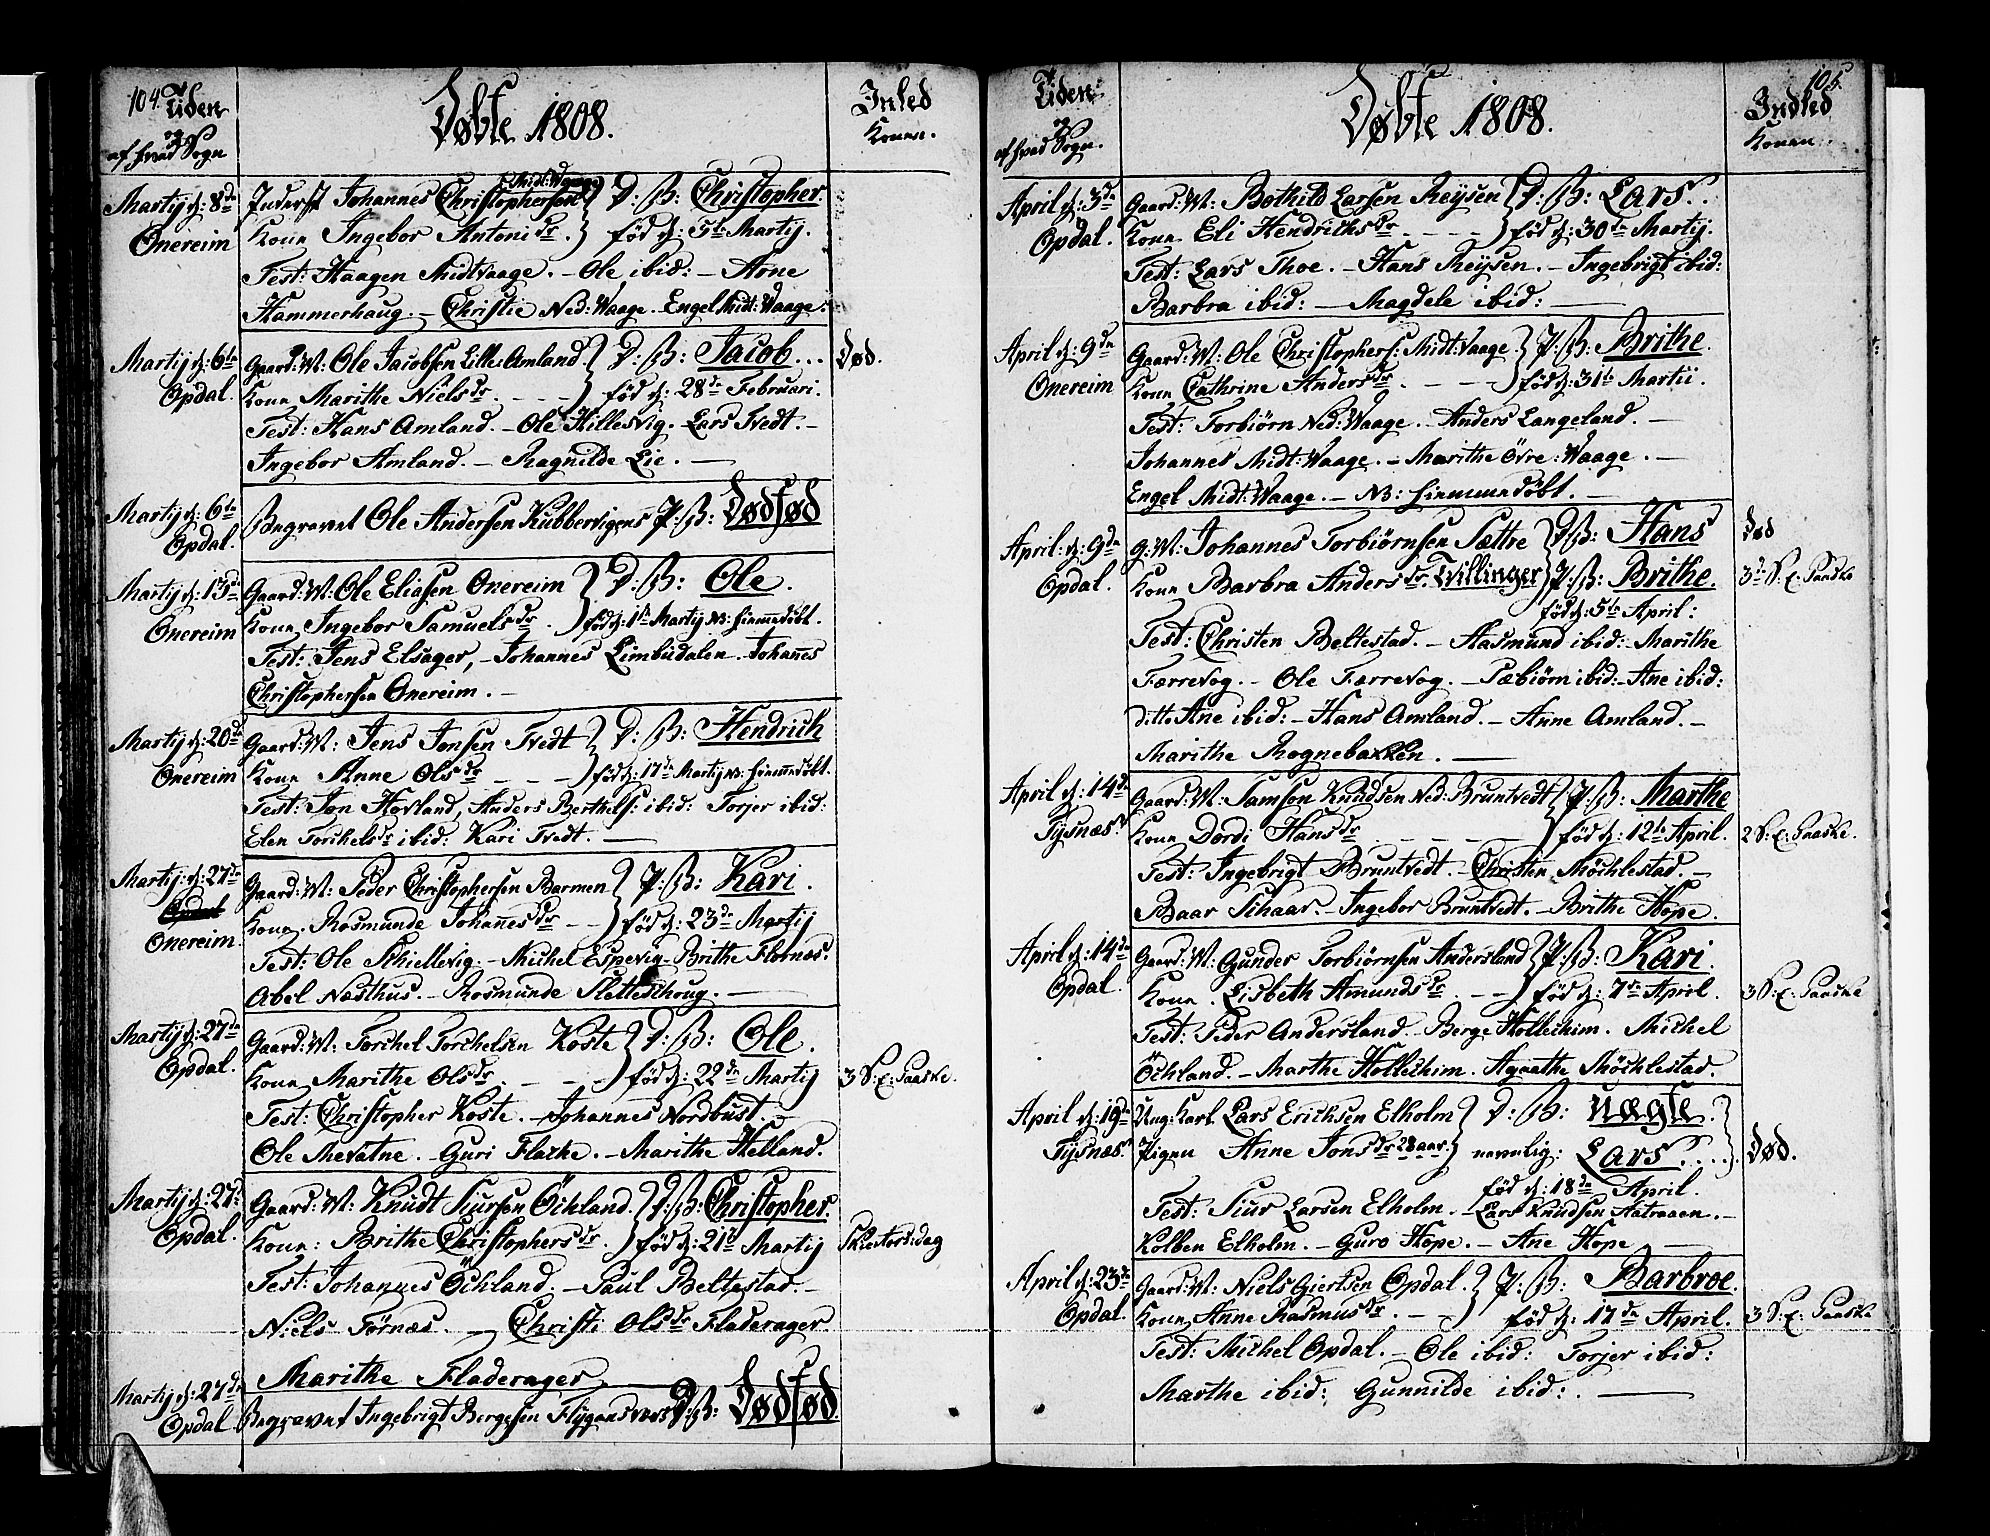 104. Tiden
og
af hvad Sogn
Døbte 1808.
Inled
Konen.
Martij d: 8de
Onereim
Inderst Johannes Christophersen Midt:Waage } D: B: Christopher
Kone Ingebor Antonidr. } fød d: 5te Martij.
Test: Haagen Midtvaage. - Ole ibid: - Arne
Hammerhaug. - Christie Ned:Waage. Engel Midt:Waage.
Martij d: 6te
Opdal.
Gaard:M: Ole Jacobsen Lille:Amland } D: B: Jacob...
Død.
Kone Marithe Nielsdr. - - - } fød d: 28de Februari.
Test: Hans Amland. - Ole Hillesvig. Lars Tvedt. -
Ingebor Amland. - Ragnilde Lie. -
Martij d: 6te
Opdal.
Begravet Ole Andersen Kubbervigens P: B: Dødfød
Martij d: 13de
Onereim
Gaard:M: Ole Eliasen Onereim } D: B: Ole.
Kone Ingebor Samuelsdr. } fød d: 1ste Martij NB: hiemmedøbt.
Test: Jens Elsager, - Johannes Limbudalen. Johannes
Christophersen Onereim. -
Martij d: 20de
Onereim
Gaard:M: Jens Jonsen Tvedt } D: B: Hendrich
Kone Anne Olsdr - - - } fød d: 17de Martij NB: hiemmedøbt.
Test: Jon Hovland, Anders Berthels: ibid: Torjer ibid:
Elen Torchelsdr ibid: Kari Tvedt. -
Martij: d: 27de
Opdal
Onereim.
Gaard:M: Peder Christophersen Barmen } P: B: Kari.
Kone. Rosmunde Johannesdr - - } fød d: 23de Martij
Test: Ole Skiellevig. - Michel Espevig - Brithe Flornæs.
Abel Næsthus. - Rosmunde Sletteschoug. -
Martij d: 27de
Opdal.
Gaard:M: Torchel Torchelsen Koste } D: B: Ole.
Kone Marithe Olsdr. - - - } fød d: 22de Martij
3 S: E: Paaske.
Test: Christopher Koste. - Johannes Nordbust. -
Ole Mevatne. - Guri Flazke. - Marithe Helland.
Martij d: 27de
Opdal.
Gaard:M: Knudt Siursen Öchland. } D: B: Christopher.
Kone: Brithe Christophersdr. } fød d: 21de Martij
Skiertorsdag
Test: Johannes Öchland. - Paul Beltestad. -
Niels Tørnæs. - Christi Olsdr Fladerager.
Marithe Fladerager -
Martij d: 27de
Opdal.
Begravet Ingebrigt Bergesen D: B: Dødfød.
105.
Tiden
og
af hvad Sogn.
Døbte 1808.
Indled
Konen.
April d: 3de
Opdal.
Gaard:M: Bothild Larsen Reysen } D: B: Lars..
Kone Eli Hendrichsdr - - - - } fød d: 30te Martij.
Test: Lars Thoe. - Hans Reysen. - Ingebrigt ibid:
Barbra ibid: - Magdele ibid: -
April d: 9de
Onereim
Gaard:M: Ole Christophers: Midt:Vaage } P: B: Brithe.
Kone Cathrine Andersdr. - - - } fød d: 31te Martii.
Test: Torbiørn Ned:Waage. - Anders Langeland. -
Johannes Midt:Waage. - Marithe Övre:Waage. -
Engel Midt:Waage. - NB: hiemmedøbt. -
April: d: 9de
Opdal.
G:M: Johannes Torbiørnsen Sættre } D: B: Hans
Død
Kone Barbra Andersdr. Tvillinger } P: B: Brithe.
3de S: E: Paaske
fød d: 5te April:
Test: Christen Beltestad. - Aasmund ibid: Marithe
Færrevog. - Ole Færrevog. - Pæbiörn ibid: - Ane ibid:
ditto Ane ibid: - Hans Amland. - Anne Amland. -
Marithe Rognebakken. -
April d: 14de
Tysnæs.
Gaard:M: Samson Knudsen Ned:Bruntvedt } P: B: Marthe
Kone Dordi Hansdr - - - - } fød d: 12te April.
2 S: E: Paaske.
Test: Ingebrigt Bruntvedt. - Christen Møchlestad. -
Baar Schaar. - Ingebor Bruntvedt. - Brithe Hope.
April d: 14de
Opdal.
Gaard:M: Gunder Torbiørnsen Andersland } P: B: Kari.
Kone. Lisbeth Amundsdr. - - } fød d: 7de April.
3 S: E: Paaske
Test: Peder Andersland. - Berge Hollechim. Michel
Öchland. - Marthe Hollechim. Agaathe Møchlestad.
April d: 19de
Tysnæs.
Ung:Karl Lars Erichsen Elholm } D: B: Uægte.
Pigen Anne Jonsdr 28 aar } navnlig: Lars....
Død.
fød d: 18de April.
Test: Siur Larsen Elholm. - Lars Knudsen Aatraaen. -
Kolben Elholm. - Guro Hope. - Ane Hope
April d: 23de
Opdal.
Gaard:M: Niels Giertsen Opdal. } P: B: Barbroe.
Kone Anne Rasmusdr. - - } fød d: 17de April.
3 S: E: Paaske
Test: Michel Opdal. - Ole ibid: Torjer ibid:
Marthe ibid: Gunnilde ibid: -